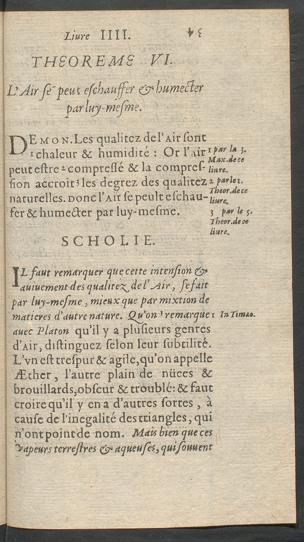 Liure IIII. 34
THEOREME VI.
L'Air se peut eschauffer & humecter
par luy-mesme.
DEMON. Les qualitez de l'Air sont
1 chaleur & humidité : Or l'air
peut estre 2 compressé & la compres-
sion accroit 3 les degrez des qualitez
naturelles. donc l'Air se peut eschau-
fer & humecter par luy-mesme.
1 par la 3.
Max. de ce
liure.
2 par le 1.
Theor. de ce
liure.
3 par le 5.
Theor. de ce
liure.
SCHOLIE.
IL faut remarquer que cette intension &
auiuement des qualitez de l'Air, se fait
par luy-mesme, mieux que par mixtion de
matieres d'autre nature. Qu'on 1 remarque
auec Platon qu'il y a plusieurs genres
d'Air, distinguez selon leur subtilité.
L'vn est trespur & agile, qu'on appelle
Æther, l'autre plain de nüees &
brouillards, obscur & troublé: & faut
croire qu'il y en a d'autres sortes, à
cause de l'inegalité des triangles, qui
n'ont point de nom. Mais bien que ces
vapeurs terrestres & aqueuses, qui souuent
1 In Timæo.